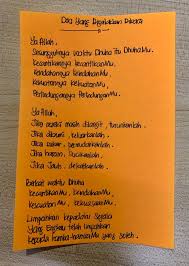 Doa Yang Digunakan Diketa
Ya Allah,
Sesungguhnya Waktu Dhuha itu DhuhaMu,
Kecantikannya KecantikanMu,
Keindahannya KeindahanMu,
Kekuatannya KekuatanMu,
Perlindungannya PerlindunganMu.
Ya Allah,
Jika rezeki masih dilangit, turunkanlah
Jika dibumi, keluarkanlah,
Jika sukar, permudahkanlah,
Jika haram, Sucikanlah,
Jika Jauh, dekatkanlah.
Berkat waktu Dhuha
KecantikanMu, KeindahanMu
KekuatanMu, KekuasaanMu,
Limpahkan kepadaku Segala
Yang Engkau telah limpahkan
Kepada hamba-hambaMu yang Soleh.